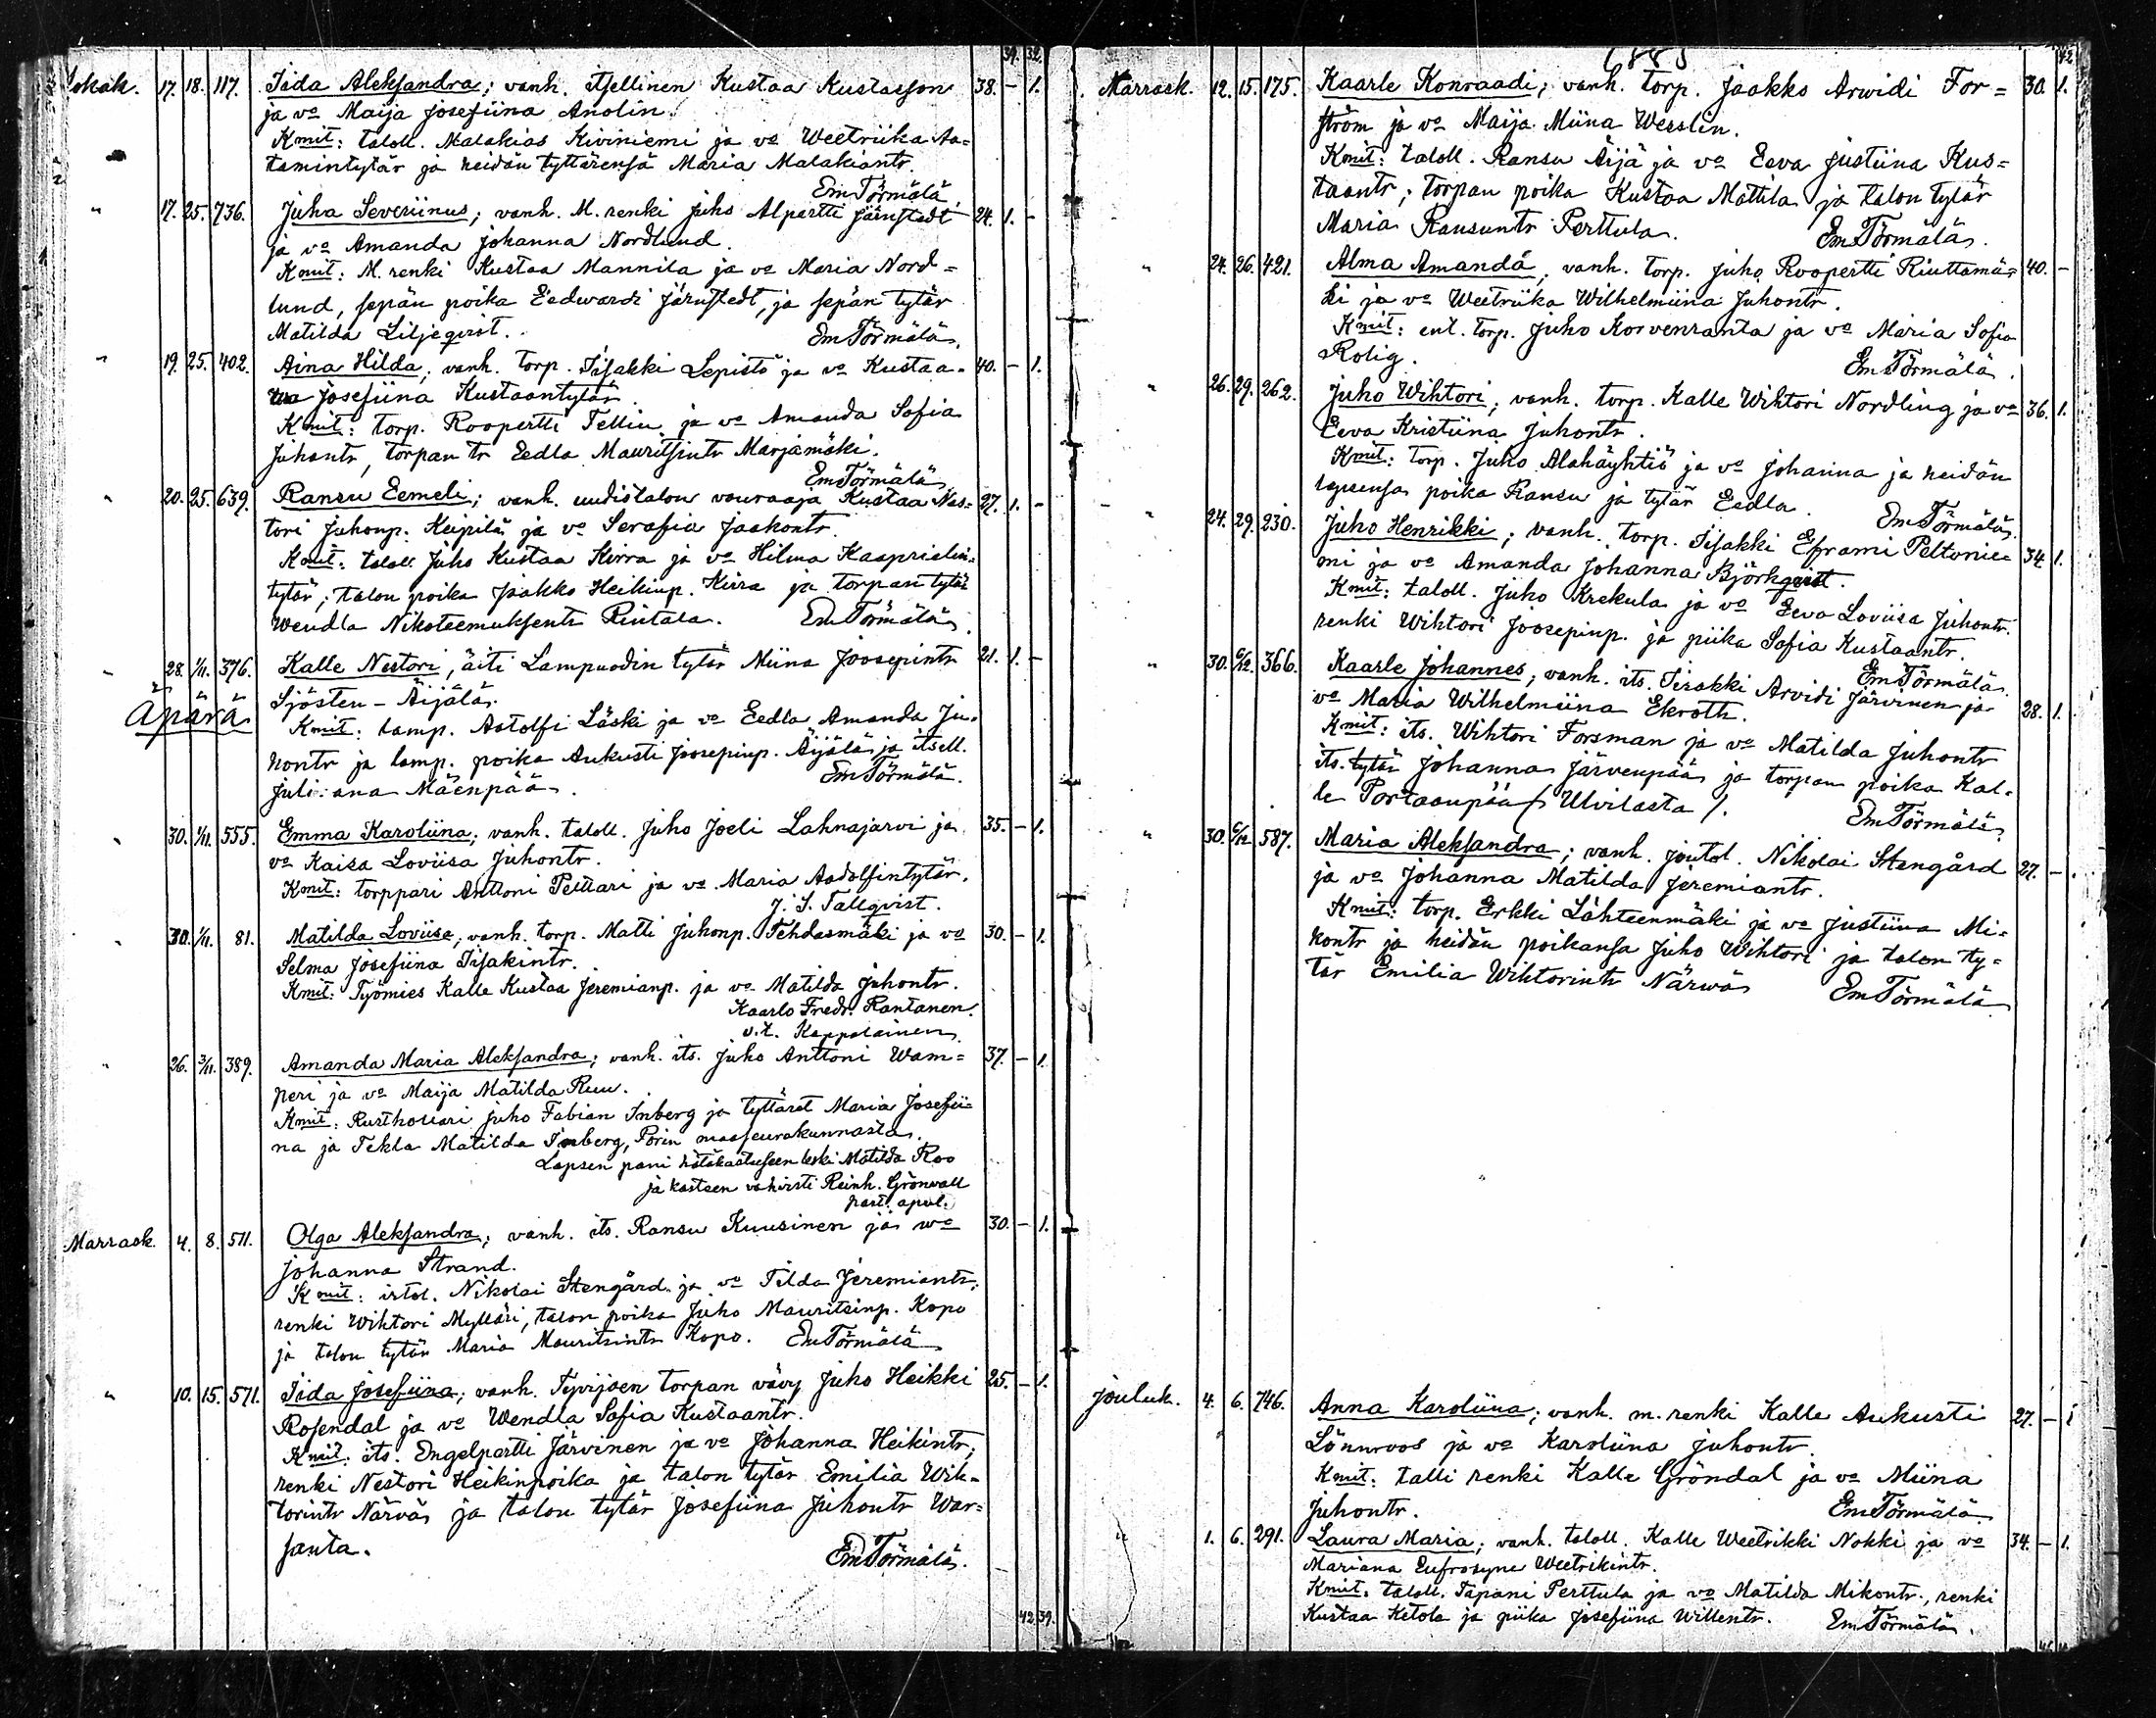 39. 32.
Lokak. 17. 18. 117. Iida Aleksandra; vanh. itsellinen Kustaa Kustasson 38. - 1.
ja vo Maija Josefiina Anolin.
Kmit: taloll. Malakias Kiviniemi ja vo Weetriika Aa=
tamintytär ja heidän tyttärensä Maria Malakiantr.
EmTörmälä
" 17. 25. 736. Juha Severiinus; vanh. M. renki Juho Alpertti Järnstedt 24. 1. -
ja vo Amanda Johanna Nordlund.
Kmit: M. renki Kustaa Mannila ja vo Maria Nord=
lund, sepän poika Eedwardi Järnstedt, ja sepän tytär
Matilda Liljeqvist. EmTörmälä.
" 19. 25. 402. Aina Hilda; vanh. torp. Iisakki Lepistö ja vo Kustaa= 40. - 1.
va Josefiina Kustaantytär.
Kmit: torp. Roopertti Tellin ja vo Amanda Sofia
Juhontr, torpan tr Eedla Mauritsintr Marjamäki.
EmTörmälä
" 20. 25. 639. Ransu Eemeli; vanh. uudistalon vouraaja Kustaa Nes= 27. 1. -
tori Juhonp. Keipilä ja vo Serafia Jaakontr.
Kmit: taloll. Juho Kustaa Kirra ja vo Hilma Kaaprielin=
tytär; talon poika Jaakko Heikinp. Kirra ja torpan tytär
Wendla Nikoteemuksentr Rintala. EmTörmälä.
" 28. 1/11. 376. Kalle Nestori, äiti Lampuodin tytär Miina Joosepintr 21. 1. -
Äpärä Sjösten - Äijälä.
Kmit: lamp. Aatolfi Läski ja vo Eedla Amanda Ju=
hontr ja lamp. poika Aukusti Joosepinp. Äijälä ja itsell.
Juliana Mäenpää. EmTörmälä.
" 30. 1/11. 555. Emma Karoliina; vanh. taloll. Juho Joeli Lahnajarvi ja 35. - 1.
vo Kaisa Loviisa Juhontr.
Kmit: torppari Anttoni Pelttari ja vo Maria Aadolfintytär.
J. S. Tallqvist.
" 30. 1/11. 81. Matilda Loviisa; vanh. torp. Matti Juhonp. Tehdasmäki ja vo 30. - 1.
Selma Josefiina Iisakintr.
Kmit: Työmies Kalle Kustaa Jeremianp. ja vo Matilda Juhontr.
Kaarlo Fredr. Rantanen.
v.t. Kappalainen
" 26. 3/11. 389. Amanda Maria Aleksandra; vanh. its. Juho Anttoni Wam= 37. - 1.
peri ja vo Maija Matilda Ruu.
Kmit: Rusthollari Juho Fabian Inberg ja tyttäret Maria Josefii=
na ja Tekla Matilda Inberg, Porin maaseurakunnasta.
Lapsen pani hätäkasteeseen leski Matilda Roo
ja kasteen vahvisti Reinh. Grönvall
past. apul.
Marrask. 4. 8. 511. Olga Aleksandra; vanh. its. Ransu Kuusinen ja wo 30. - 1.
Johanna Strand.
Kmit: irtol. Nikolai Stengård ja vo Tilda Jeremiantr.
renki Wihtori Myllari, talon poika Juho Mauritsinp. Kopo
ja talon tytär Maria Mauritsintr Kopo. EmTörmälä
" 10. 15. 571. Iida Josefiina; vanh. Tyvijoen torpan vävy Juho Heikki 25. - 1.
Rosendal ja vo Wendla Sofia Kustaantr.
Kmit: its. Engelpertti Järvinen ja vo Johanna Heikintr,
renki Nestori Heikinpoika ja talon tytär Emilia Wih=
torintr Närvä ja talon tytär Josefiina Juhontr War=
santa. EmTörmälä.
42. 39.
1885
42
Marrask. 12. 15. 175. Kaarle Konraadi; vanh. torp. Jaakko Arwidi For= 30. 1.
ström ja vo Maija Miina Wesslin.
Kmit: taloll. Ransu Äijä ja vo Eeva Justiina Kus=
taantr; torpan poika Kustaa Mattila ja talon tytär
Maria Ransuntr Perttula. EmTörmälä.
" 24. 26. 421. Alma Amanda; vanh. torp. Juho Roopertti Riuttamä= 40. -
ki ja vo Weetriika Wilhelmiina Juhontr.
Kmit: ent. torp. Juho Korvenranta ja vo Maria Sofia
Rolig. EmTörmälä.
" 26. 29. 262. Juho Wihtori; vanh. torp. Kalle Wihtori Nordling ja vo 36. 1.
Eeva Kristiina Juhontr.
Kmit: torp. Juho Alahäyhtiö ja vo Johanna ja heidän
lapsensa poika Ransu ja tytär Eedla. EmTörmälä.
" 24. 29. 230. Juho Henrikki; vanh. torp. Iisakki Eframi Peltonie= 34. 1.
mi ja vo Amanda Johanna Björkqvist.
Kmit: taloll. Juho Krekula ja vo Eeva Loviisa Juhontr.
renki Wihtori Joosepinp. ja piika Sofia Kustaantr.
EmTörmälä.
" 30. 6/12. 366. Kaarle Johannes; vanh. its. Iisakki Arvidi Järvinen ja 28. 1.
vo Maria Wilhelmiina Ekroth.
Kmit: its. Wihtori Forsman ja vo Matilda Juhontr
its. tytär Johanna Järvenpää ja torpan poika Kal=
le Portaanpää /: Ulvilasta :/. EmTörmälä
" 30. 6/12. 587. Maria Aleksandra; vanh. joutol. Nikolai Stengård 27. -
ja vo Johanna Matilda Jeremiantr.
Kmit: torp. Erkki Lähteenmäki ja vo Justiina Mi=
kontr ja heidän poikansa Juho Wihtori ja talon ty=
tär Emilia Wihtorintr Närwä EmTörmälä
Jouluk. 4. 6. 746. Anna Karoliina; vanh. m. renki Kalle Aukusti 27. - 1
Lönnroos ja vo Karoliina Juhontr.
Kmit: talli renki Kalle Gröndal ja vo Miina
Juhontr. EmTörmälä
" 1. 6. 291. Laura Maria; vanh. taloll. Kalle Weetrikki Nokki ja vo 34. - 1.
Mariana Eufrosyne Weetrikintr.
Kmit. taloll. Tapani Perttula ja vo Matilda Mikontr., renki
Kustaa Ketola ja piika Josefiina Willentr. EmTörmälä.